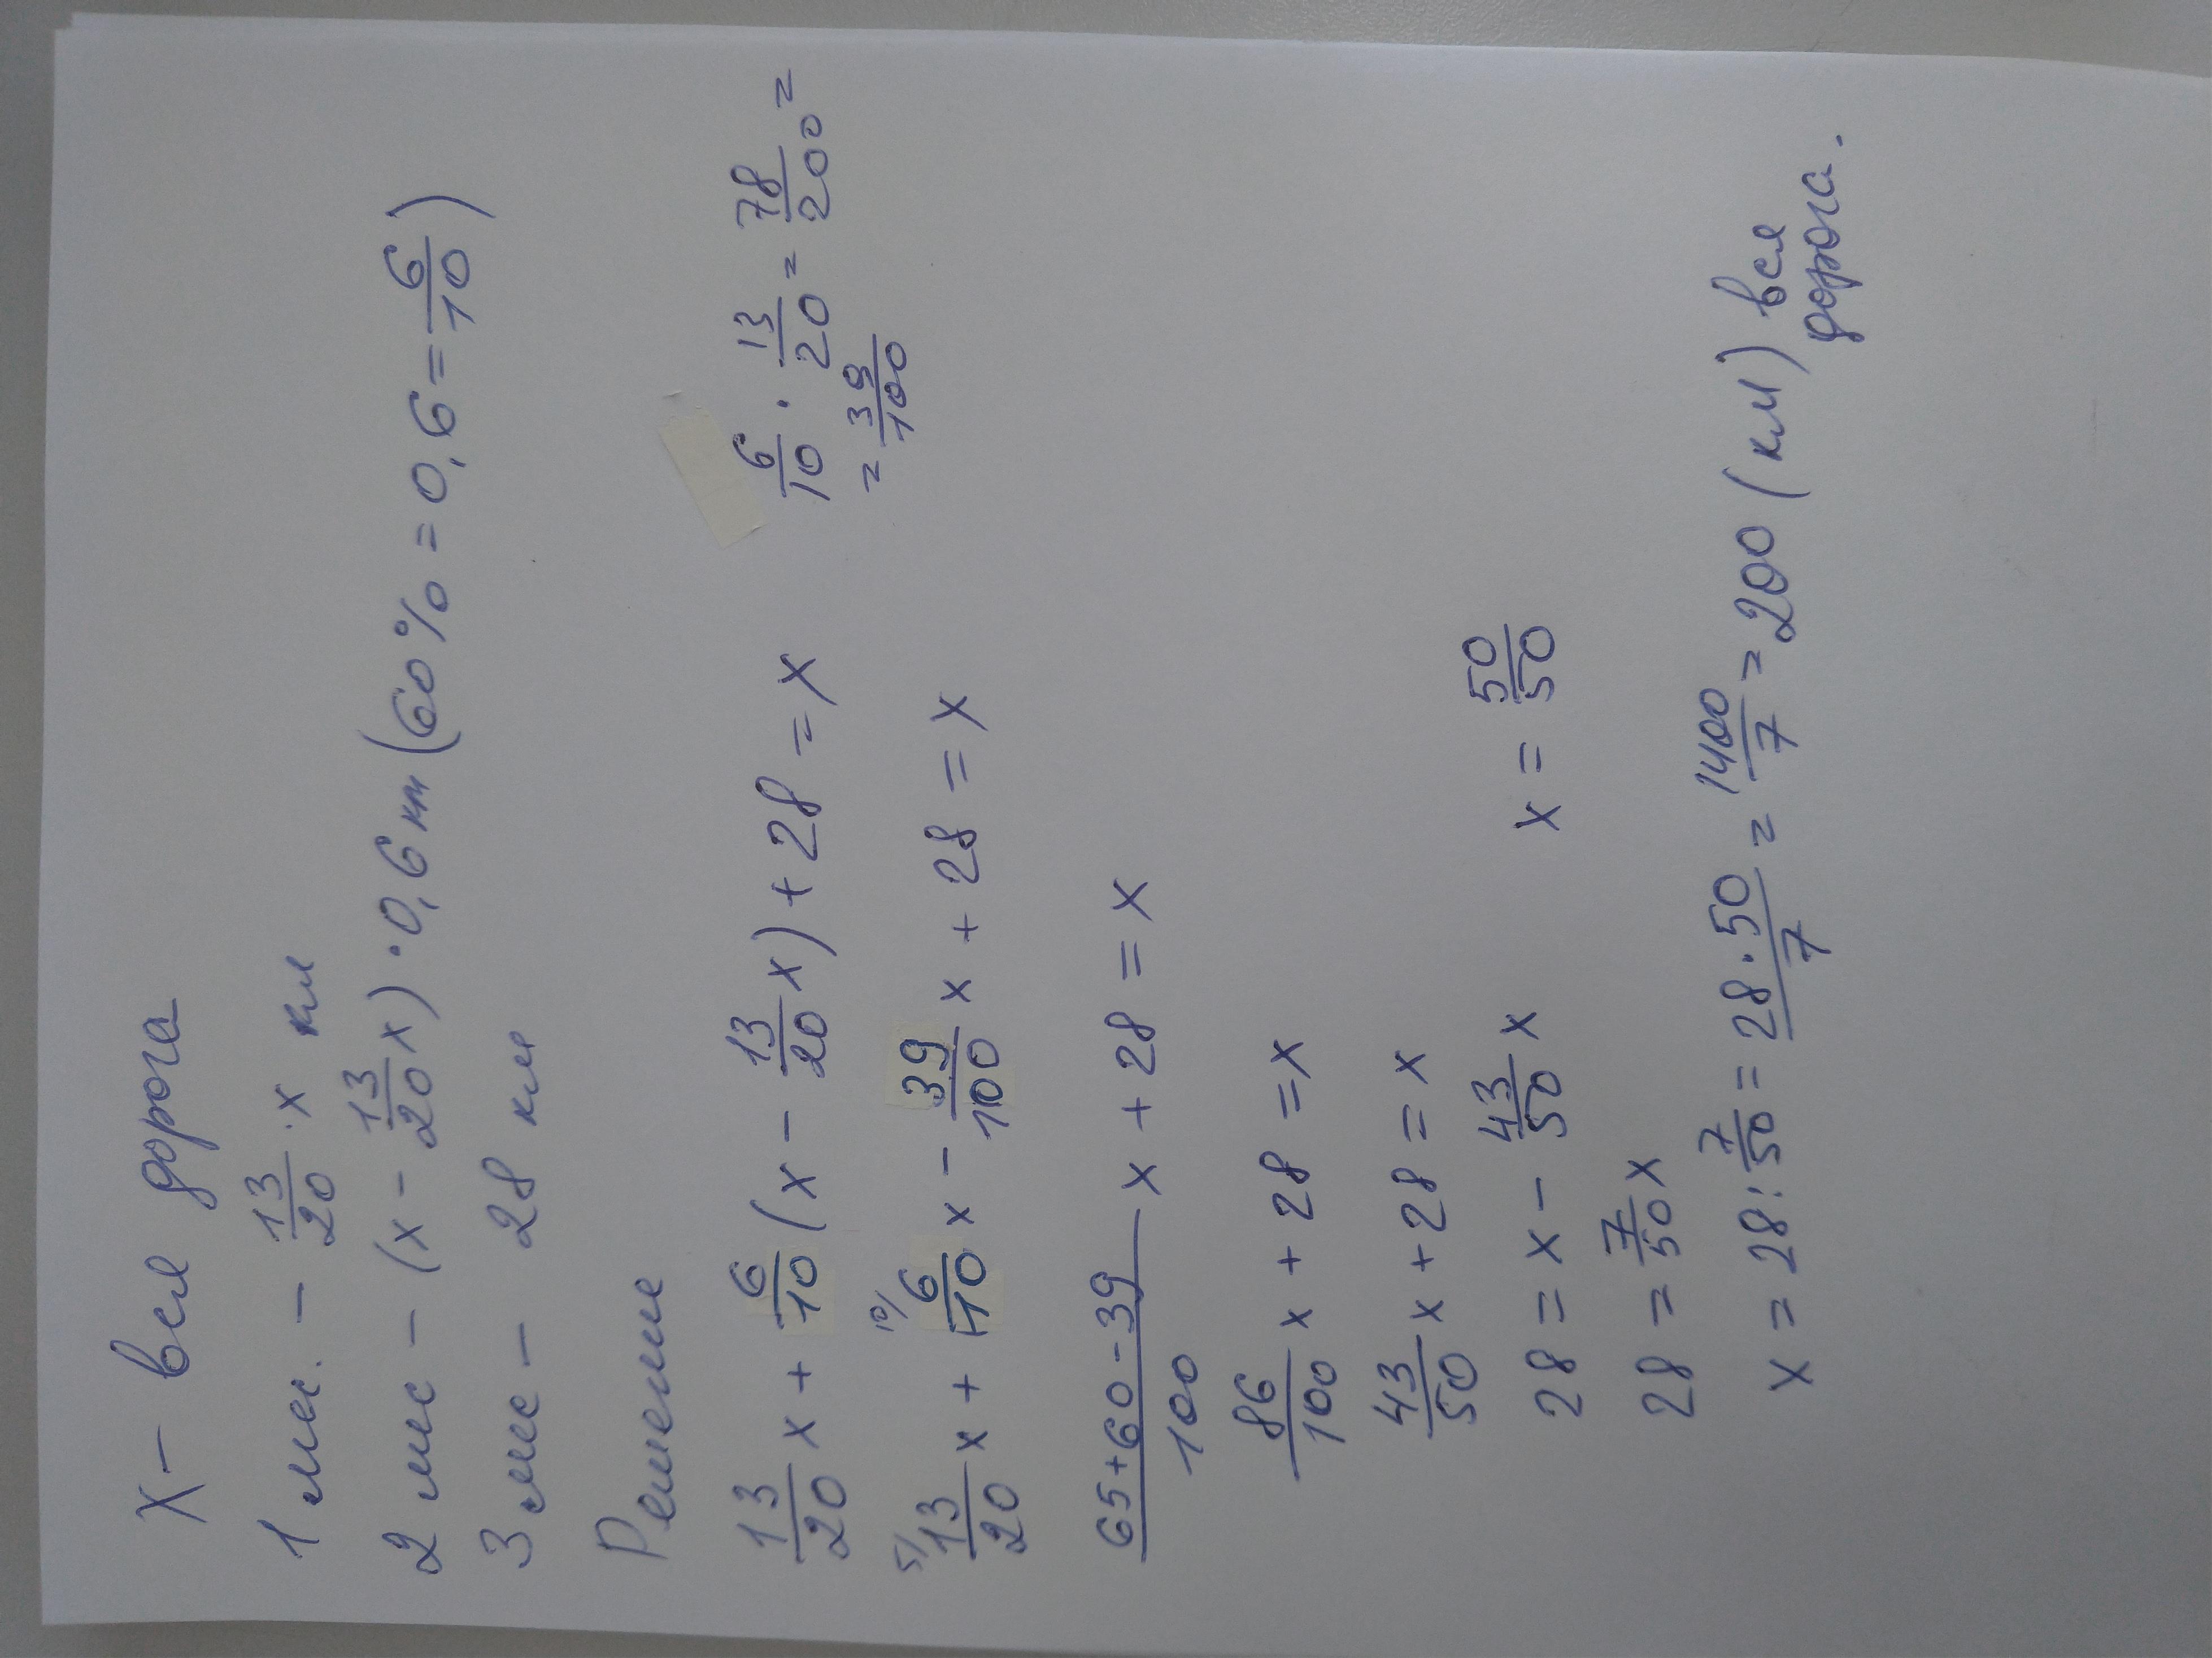 x - вся дорога
1 мес. - 13/20 · x км
2 мес - (x - 13/20 x) · 0,6 км (60% = 0,6 = 6/10)
3 мес - 28 км
Решение
13/20 x + 6/10 (x - 13/20 x) + 28 = x
6/10 · 13/20 = 78/200 =
= 39/100
5/ 13/20 x + 10/ 6/10 x - 39/100 x + 28 = x
65+60-39/100 x + 28 = x
86/100 x + 28 = x
43/50 x + 28 = x
28 = x - 43/50 x x = 50/50
28 = 7/50 x
x = 28 : 7/50 = 28·50/7 = 1400/7 = 200 (км) вся
дорога.